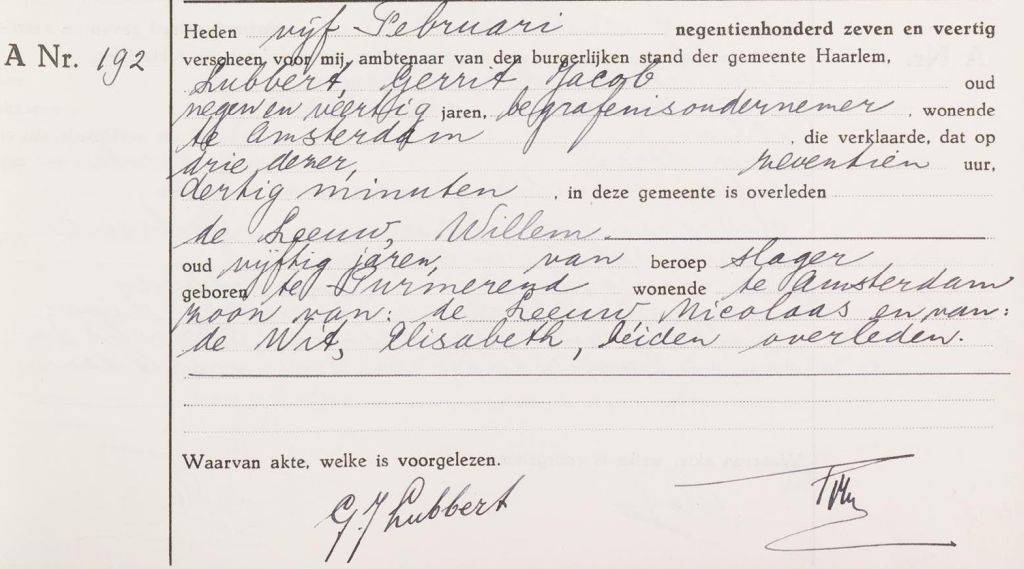 Heden vijf Februari negentienhonderd zeven en veertig
A Nr. 192
verscheen voor mij, ambtenaar van den burgerlijken stand der gemeente Haarlem,
Lubbert, Gerrit Jacob oud
negen en veertig jaren, begrafenisondernemer, wonende
te Amsterdam, die verklaarde, dat op
drie dezer, zeventien uur,
dertig minuten, in deze gemeente is overleden
de Leeuw, Willem
oud vijftig jaren, van beroep slager
geboren te Purmerend wonende te Amsterdam
zoon van: de Leeuw Nicolaas en van:
de Wit, Elisabeth, beiden overleden.
Waarvan akte, welke is voorgelezen.
G J Lubbert